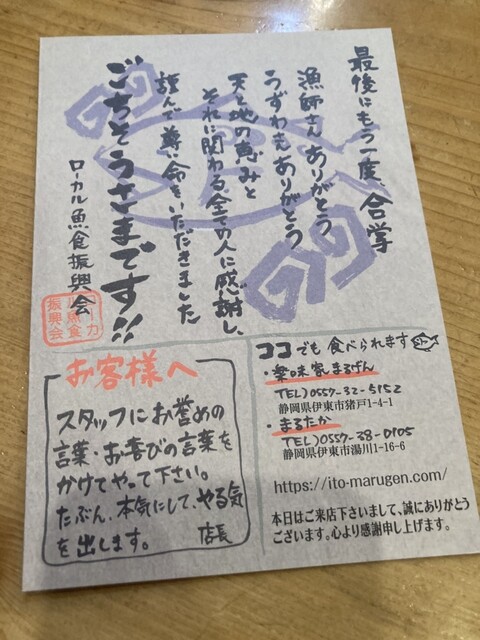 最後にもう一度、合掌
漁師さんありがとう
うずわもありがとう
天と地の恵みと
それに関わる全ての人に感謝し、
謹んで尊い命をいただきました
ごちそうさまです!!
ローカル魚食振興会
ローカ
ル魚食
振興会
お客様へ
スタッフにお誉めの
言葉・お喜びの言葉を
かけてやって下さい。
たぶん、本気にして、やる気
を出します。 店長
ココでも食べられます
・楽味家まるげん
TEL)0557-32-5152
静岡県伊東市猪戸1-4-1
・まるたか
TEL)0557-38-0105
静岡県伊東市湯川1-16-6
https://ito-marugen.com/
本日はご来店下さいまして、誠にありがとう
ございます。心より感謝申し上げます。